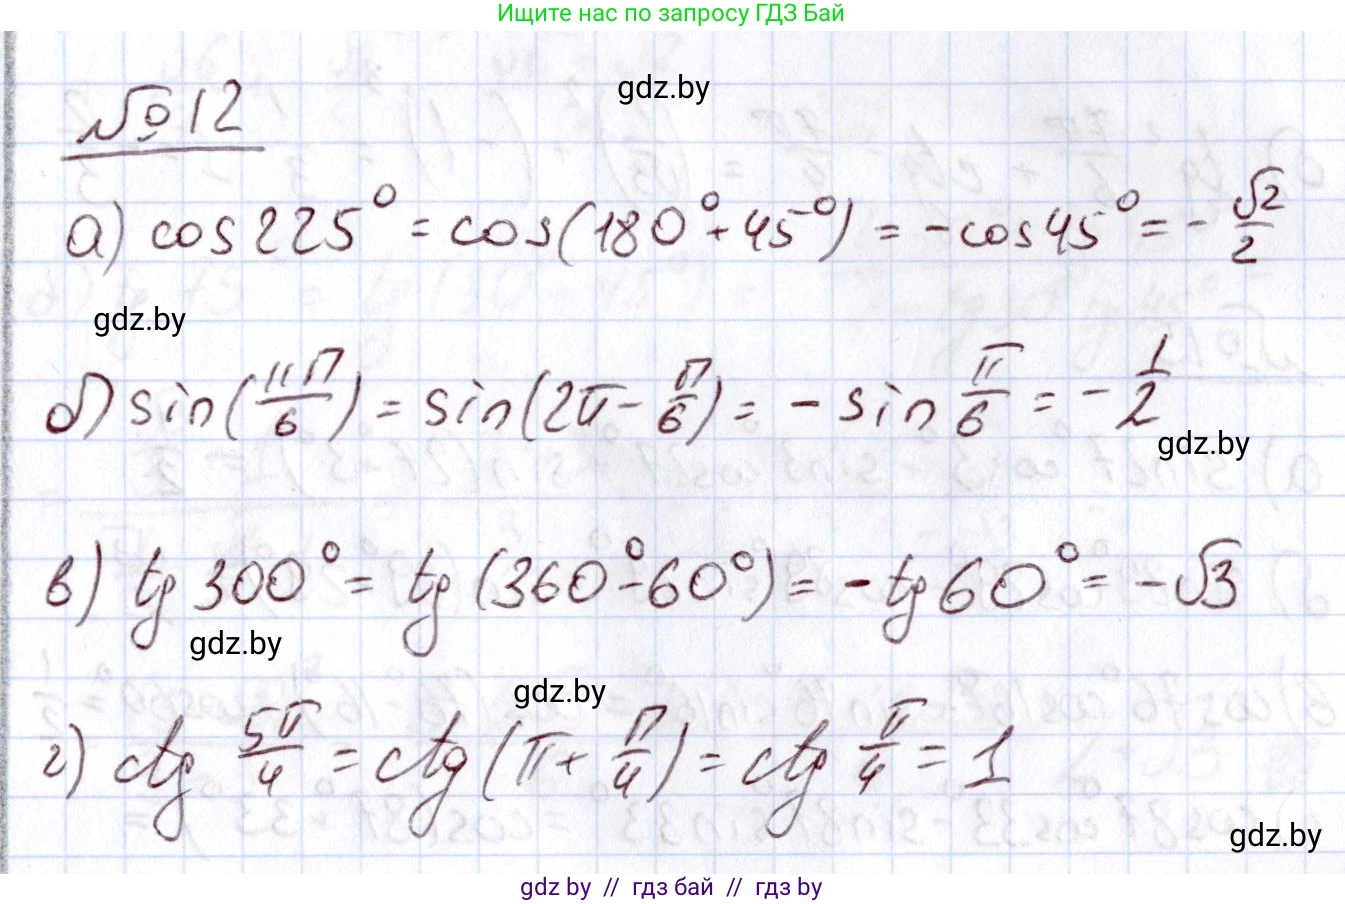 Ищите нас по запросу ГДЗ Бай
gdz.by
№12
а) cos 225° = cos(180° + 45°) = -cos 45° = - √2/2
gdz.by
б) sin(11π/6) = sin(2π - π/6) = - sin π/6 = - 1/2
gdz.by
в) tg 300° = tg (360° - 60°) = - tg 60° = - √3
gdz.by
gdz.by
г) ctg 5π/4 = ctg (π + π/4) = ctg π/4 = 1
gdz.by
gdz by // гдз бай // гдз by